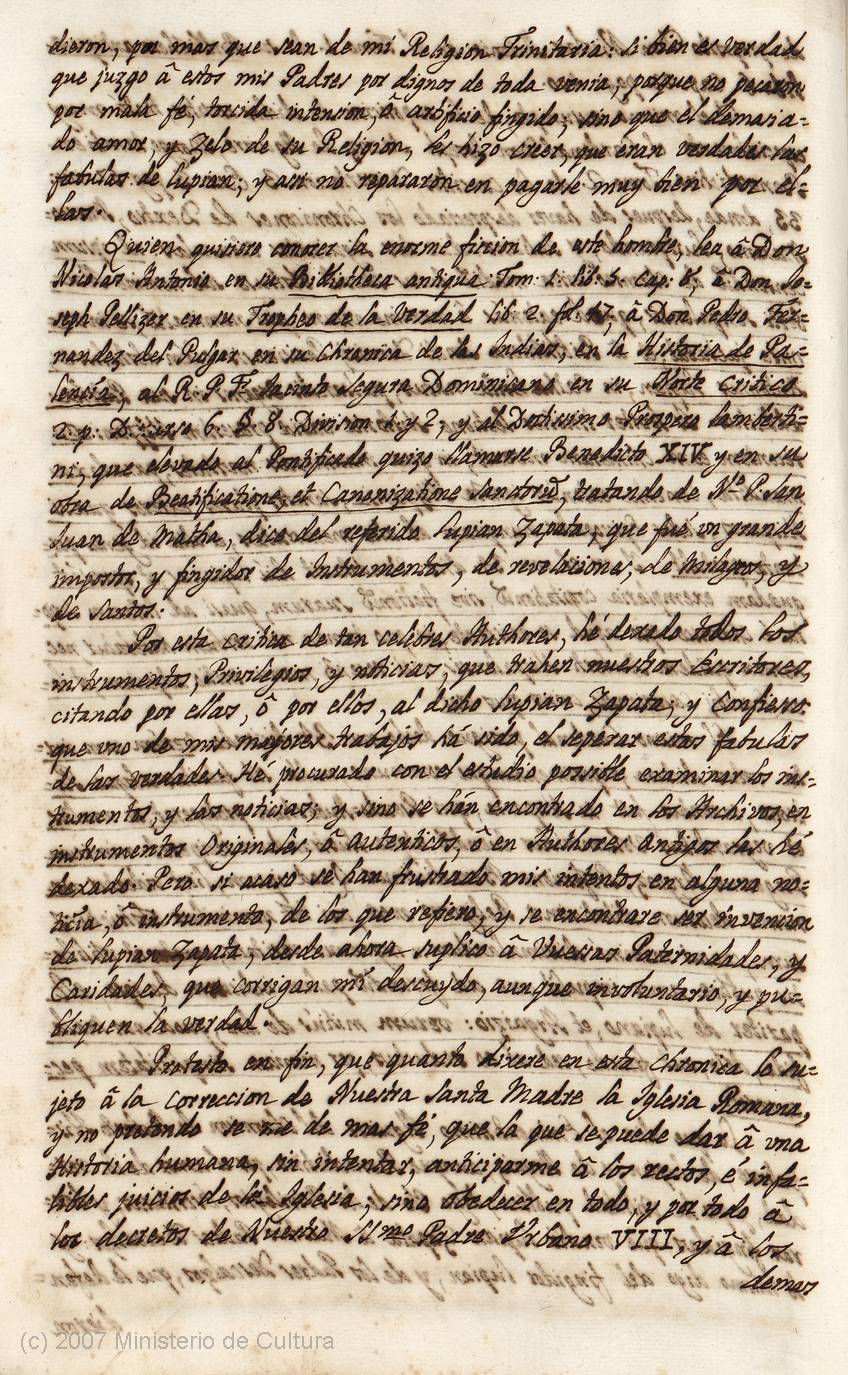 dieron, por mas que sean de mi Religion Trinitaria: si bien es verdad
que juzgo â estos mis Padres por dignos de toda venia; porque no pecaron
por mala fé, torcida intension, ô artificio fingido; sino que el demasia=
do amor, y Zelo de su Religion, les hizo creer, que eran verdades las
fabulas de lupian; y asi no repararon en pagarle muy bien por el=
las.
Quien quisiere conocer la enorme ficcion de este hombre, lea â Don
Nicolas Antonio en su Bibliotheca antiqua Tom. 1. lib. 5. cap. 8, â Don Jo=
seph Pellizer en su Tropheo de la Verdad lib. 2. fol. 17, â Don Pedro Fer=
nandez del Pulgar en su Chronica de las Indias, en la Historia de Pa=
lencia, al R. P. F. Jacinto Segura Dominicano en su Norte Critico
2. p. 6. §. 8. Division 1. y 2, y al Doctissimo Prospero lamberti=
ni, que elevado al Pontificado quizo llamarse Benedicto XIV. y en su
obra de Beatificatione, et Canonizatione Sanctorũ, tratando de Nrō P. San
Juan de Matha, dice del referido lupian Zapata, que fué vn grande
impostor, y fingidor de Instrumentos, de revelaciones, de Milagros, y
de santos.
Por esta critica de tan celebres Authores, hé dexado todos los
instrumentos, Privilegios, y noticias, que trahen nuestros Escritores,
citando por ellas, ô por ellos, al dicho lupian Zapata; y Confieso
que vno de mis mayores trabajos há sido, el seperar estas fabulas
de las verdades. Hé procurado con el estudio possible examinar los ins=
trumentos, y las noticias; y sino se hán encontrado en los Archivos, en
instrumentos Originales, ô autenticos, ô en Authores antigos las hé
dexado. Pero si acaso se han frustrado mis intentos en alguna no=
ticia, ô instrumento, de los que refiero, y se encontrare ser invencion
de lupian Zapata, desde ahora suplico â Vuessas Paternidades, y
Caridades, que corrigan mi descuydo, aunque involuntario, y pu=
bliquen la verdad.
Protesto en fin, que quanto dixere en esta Chronica lo su=
jeto â la correccion de Nuestra Santa Madre la Iglesia Romana,
y no pretendo se de mas fé, que la que se puede dar â vna
Historia humana, sin intentar, anticiparme â los rectos, é infa=
libles juicios de la Iglesia; sino obedecer en todo, y por todo â
los decretos de Nuestro SSmo Padre Vrbano VIII, y â los
demas
(c) 2007 Ministerio de Cultura